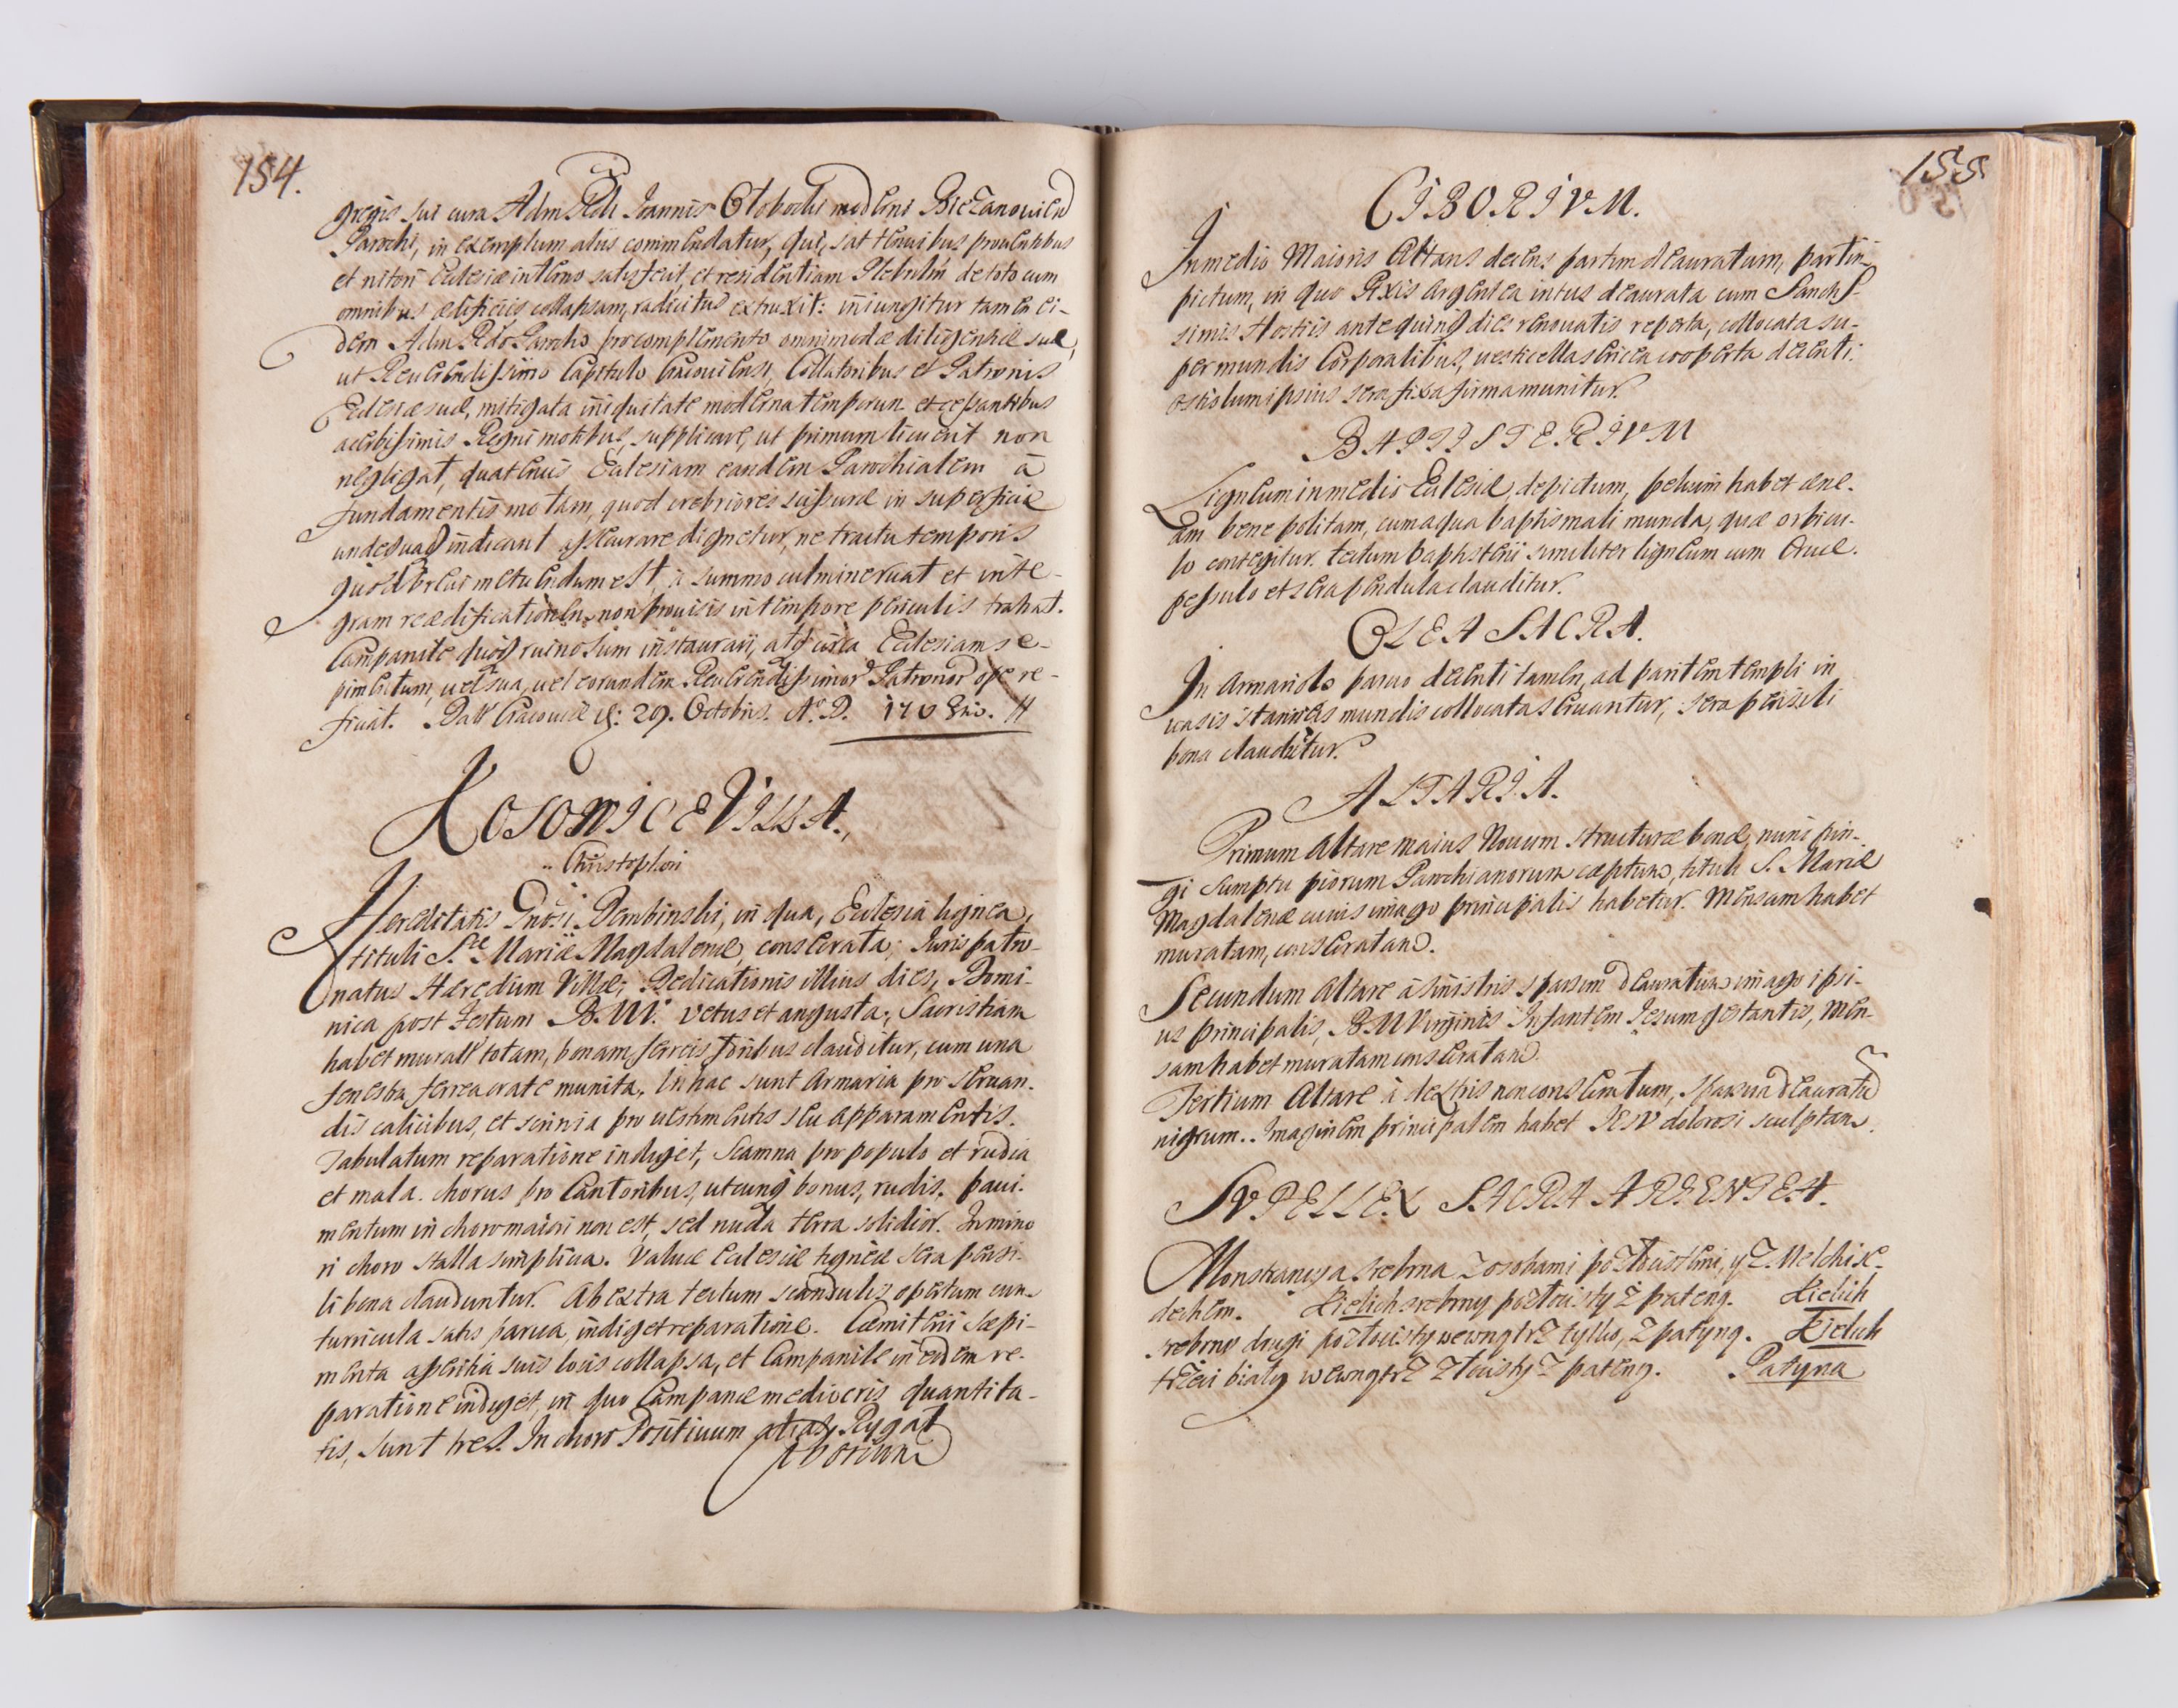 154.
gregis sui cura Adm Rdi Joannis Globocki moderni Bieżanovien
Parochi, in exemplum aliis commendatur, qui, sat tenuibus proventibus
et nitori Ecclesiæ interno satisfecit, et residentiam Plebalem de toto cum
omnibus ædificiis collapsam, radicitus extruxit: iniungitur tamen ei-
dem Adm Rdo Parocho pro complemento omnimodæ diligentiæ suæ,
ut Reverendissimo Capitulo Cracoviensi, Collatoribus et Patronis
Ecclesiæ suæ, mitigata iniquitate moderna temporum et cessantibus
acerbissimis Regni motibus, supplicare, ut primum licuerit non
negligat, quatenus Ecclesiam eandem Parochialem à
fundamentis motam, quod crebriores scissuræ in superficie
undequaq indicant assecurare dignetur, ne tractu temporis
quod brevi metuendum est, à summo culmine ruat et inte-
gram reædificationem, non provisis in tempore periculis trahat.
Campanile quoq ruinosum instaurari, atq circa Ecclesiam se-
pimentum, vel sua, vel eorundem Reverendissimor Patronor ope re-
ficiat. Datt Cracoviæ d: 29. Octobris. Ao D.
KOSOWICE VILLA.
Christophori
Hereditatis Gnosi Dembinski, in qua, Ecclesia lignea,
tituli S.tæ Mariæ Magdalenæ, consecrata; Juris patro-
natus Hæredum Villæ; Dedicationis illius dies, Domi-
nica post Festum B.M.V. vetus et angusta; Sacristiam
habet muratt totam, bonam, ferreis foribus clauditur, cum una
fenestra ferrea crate munita, in hac sunt Armaria pro servan-
dis calicibus, et scrinia pro vestimentis seu apparamentis.
Tabulatum reparatione indiget, Scamna pro populo et rudia
et mala. chorus pro Cantoribus, utcunq bonus, rudis. pavi-
mentum in choro maiori non est, sed nuda terra solidior. In mino
ri choro stalla simplicia. Valvæ Ecclesiæ ligneæ sera pensi-
li bona clauduntur. Ab extra tectum scandulis opertum cum
turricula satis parva, indiget reparatione. Cæmiterii sæpi-
menta asseritia suis locis collapsa, et Campanile in eodem re-
paratione indiget, in quo Campanæ mediocris quantita-
tis, sunt tres. In choro Positivum alias Rygał
155
CIBORIVM.
In medio Maioris Altaris decens partim deauratum, partim
pictum, in quo Pixis argentea intus deaurata cum Sanctis-
simis Hostiis ante quinq dies renovatis reperta, collocata su-
per mundis Corporalibus, vesticella sericea cooperta decenti:
ostiolum ipsius sera fixa firma munitur.
BAPTISTERIVM
Ligneum in medio Ecclesiæ, depictum, pelvim habet æne-
am bene politam, cum aqua baptismali munda, quæ orbicu-
lo contegitur. tectum baptisterii similiter ligneum cum Cruce.
pessulo et sera pendula clauditur.
OLEA SACRA.
In Armariolo parvo decenti tamen, ad parietem templi in
vasis stanneis mundis collocata servantur, sera pensili
bona clauditur.
ALTARIA.
Primum Altare maius Novum structuræ bonæ, nunc pin-
gi sumptu piorum Parochianorum cæptum, tituli S. Mariæ
Magdalenæ cuius imago principalis habetur. Mensam habet
muratam, consecratam.
Secundum Altare à sinistris sparsim deauratum imago ipsi-
us principalis, B.M Virginis Infantem Jesum gestantis, Men-
sam habet muratam consecratam.
Tertium Altare à dextris non consecratum, sparsim deauratu
nigrum.. Imaginem principalem habet JESV dolorosi sculptam.
SVPELLEX SACRA ARGENTEA.
Monstrancya srebrna z osobami pozłocistemi, y z Melchise-
dechem. Kielich srebrny pozłocisty z pateną. Kielich
srebrny drugi pozłocisty wewnątrz tylko, z patyną. Kielich
trzeci biały wewnątrz złocisty z pateną. Patyna